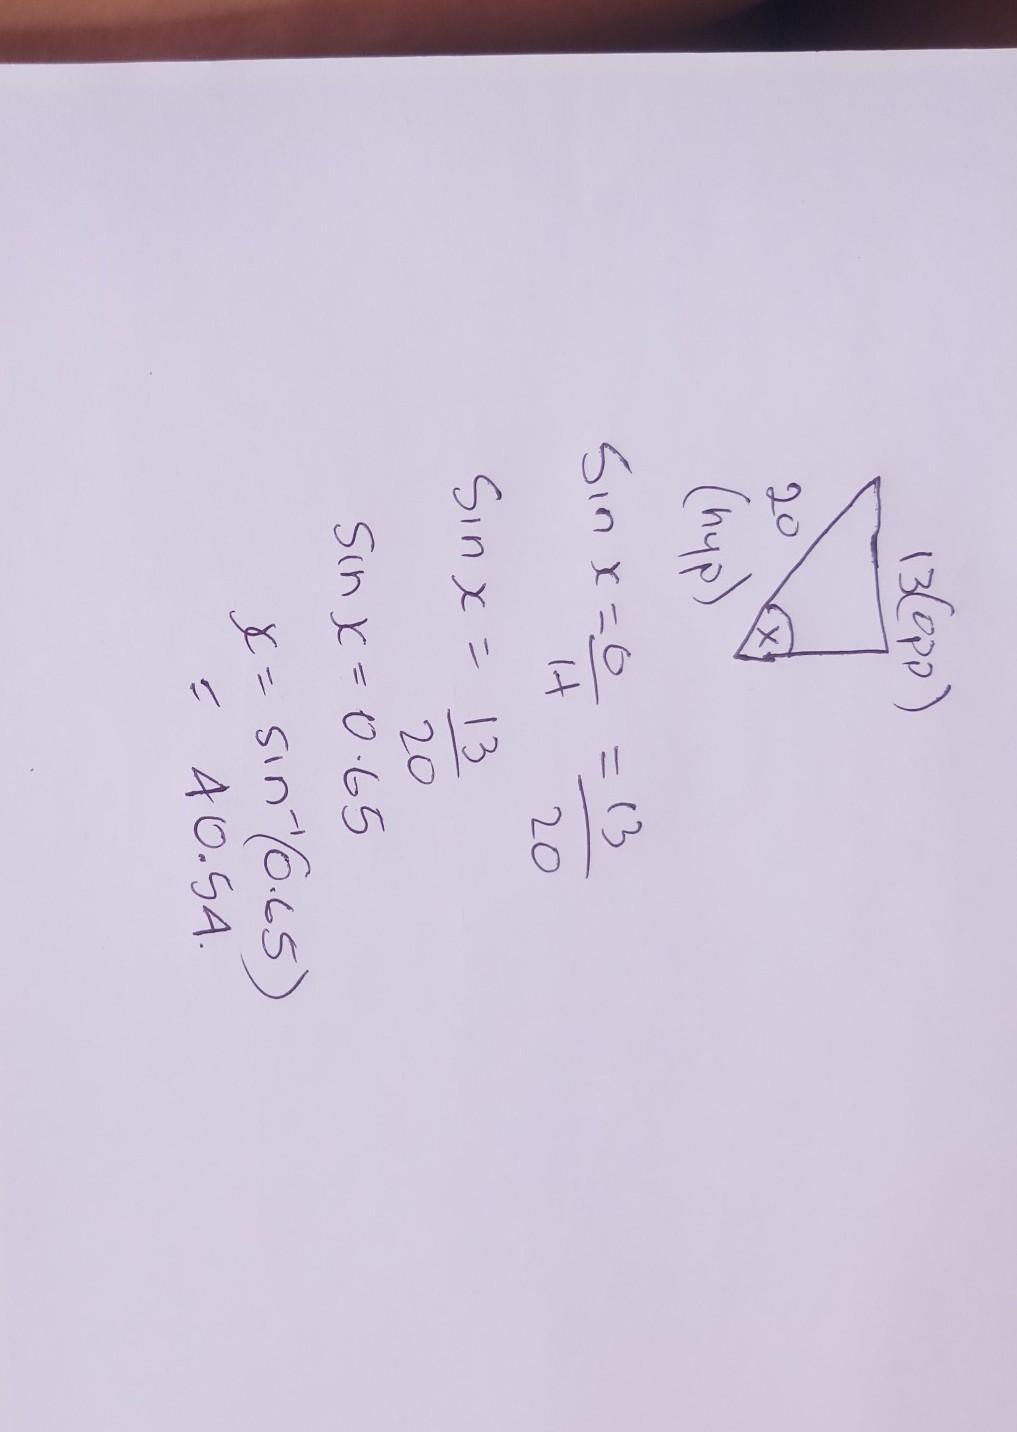 13(opp)
20
(hyp)
x
Sin x = o/H = 13/20
Sin x = 13/20
Sin x = 0.65
x = sin⁻¹(0.65)
= 40.54.